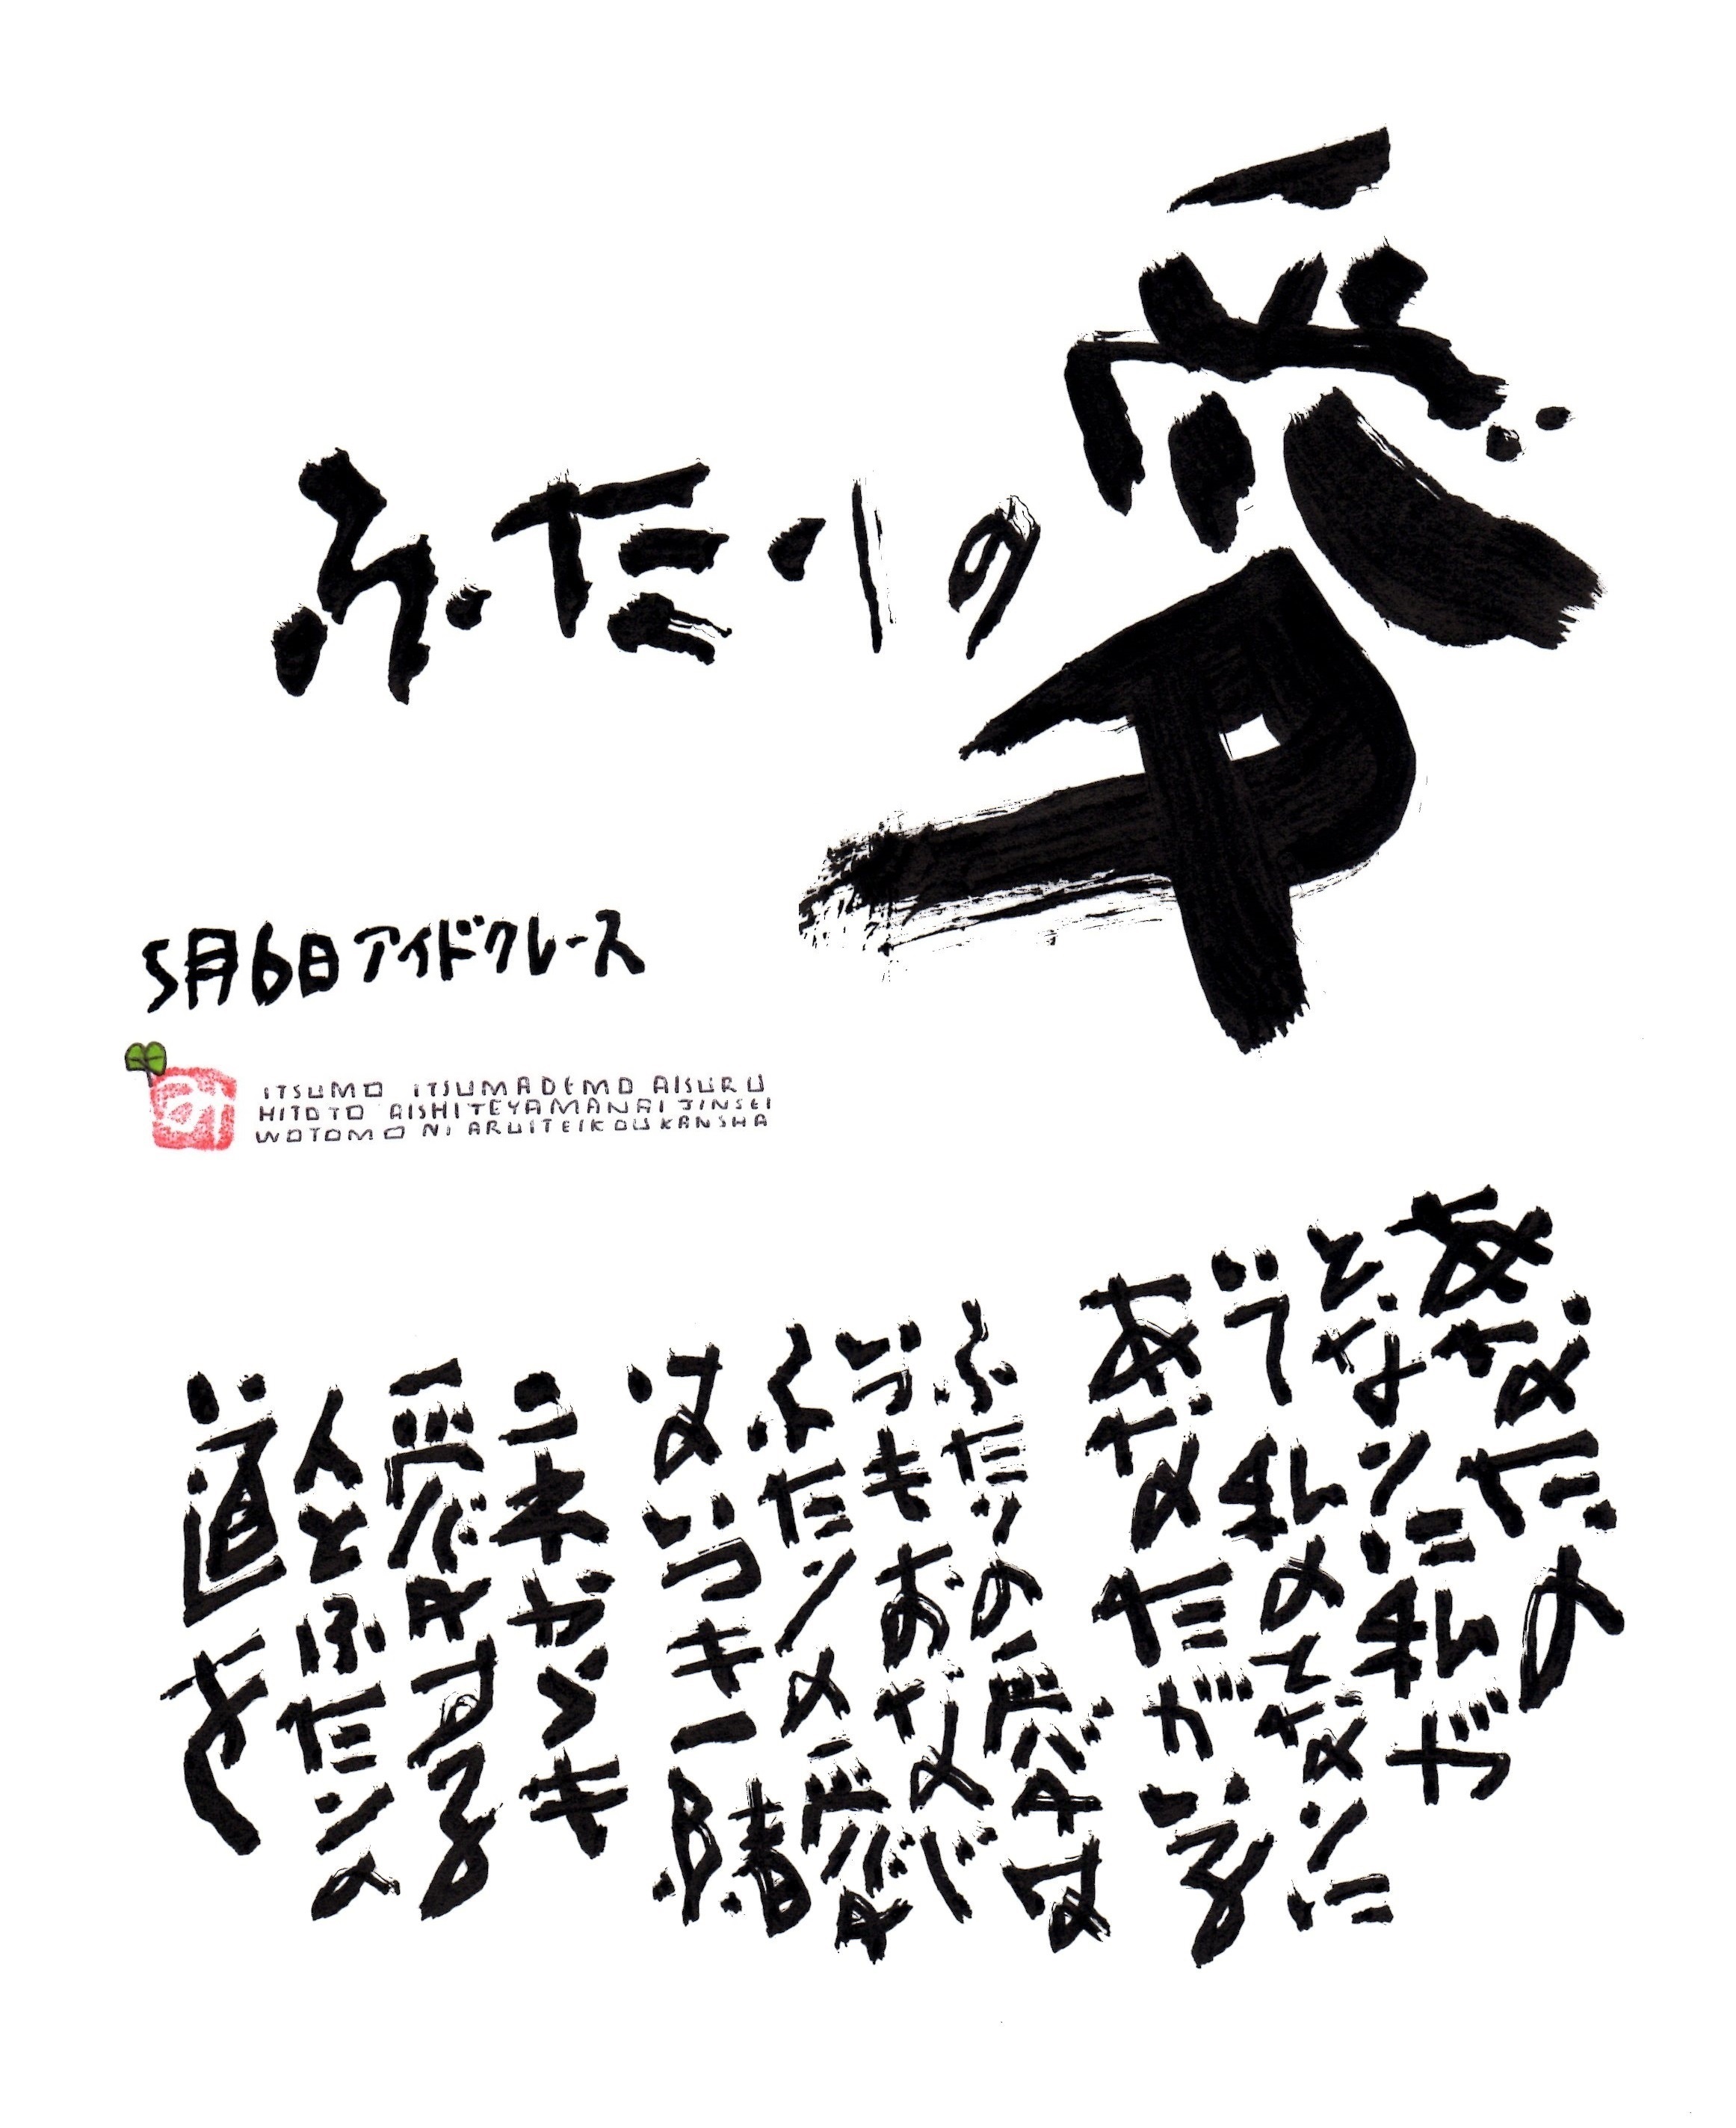 ふたりの愛
5月6日アイドクレース
み
ITSUMO ITSUMADEMO AISURU
HITOTO AISHITEYAMANAI JINSEI
WOTOMO NI ARUITEIKOU KANSHA
あなたの
となりに私が
いて私のとなりに
あなたがいる
ふたりの愛は
いつもおなじ
くふたりの愛
はいつも一緒
これからも
愛する
人とふたりの
道を